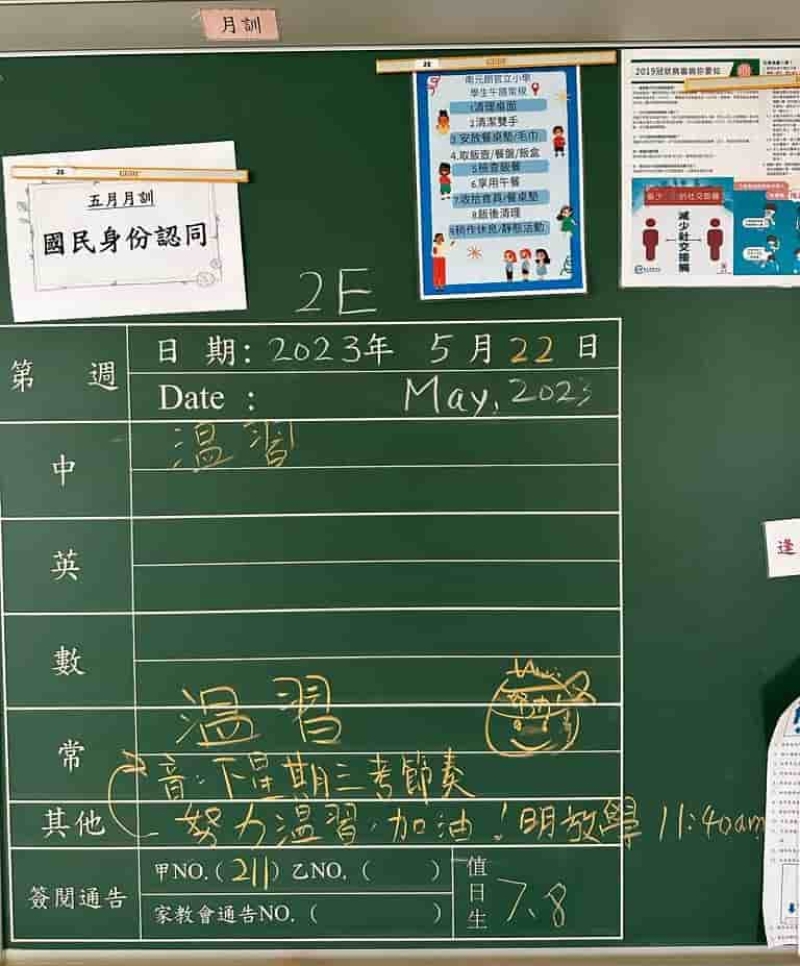 月訓
五月月訓
國民身份認同
南元朗官立小學
學生午膳常規
1清理桌面
2清潔雙手
3.安放餐桌墊/毛巾
4.取飯壺/餐盤/飯盒
5檢查飯餐
6.享用午餐
7收拾食具/餐桌墊
8飯後清理
9稍作休息/靜態活動
2019冠狀病毒病你要知
減少社交接觸
2E
第 週
日 期: 2023年 5月22日
Date : May, 2023
中 溫習
英
數
常 溫習
努力!
音:下星期三考節奏
其他 努力溫習,加油!明放學 11:40am
簽閱通告
甲NO.(211) 乙NO.( )
家教會通告NO.( )
值日生 7、8
逢